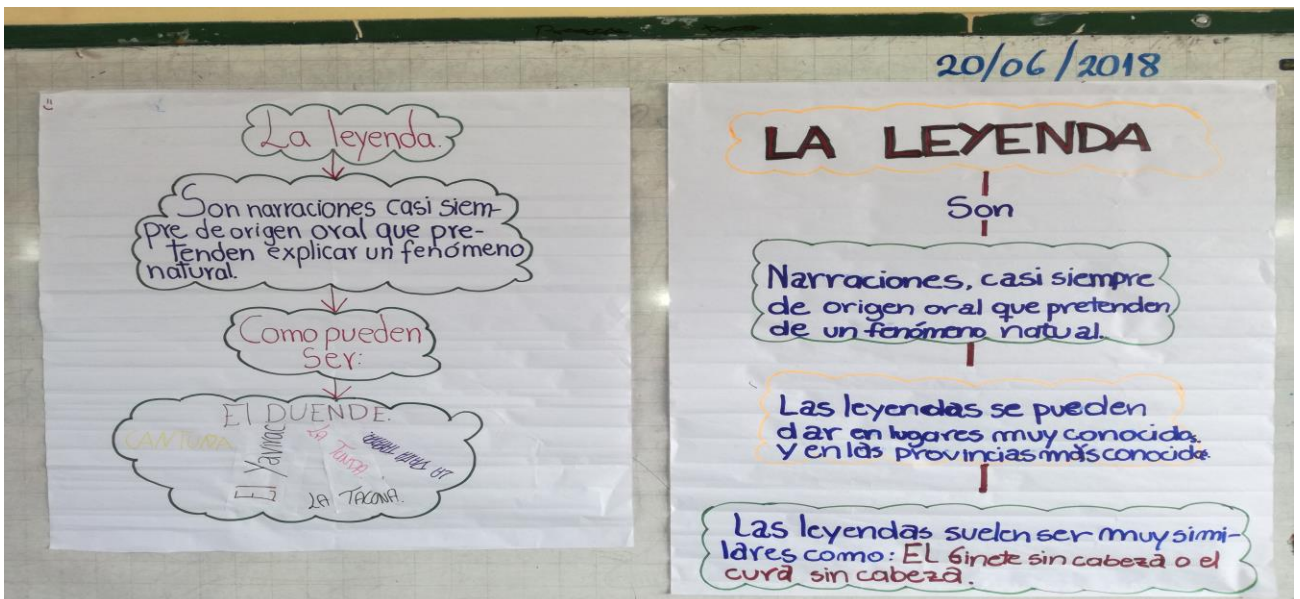 20/06/2018
La leyenda.
Son narraciones casi siem-
pre de origen oral que pre-
tenden explicar un fenómeno
natural.
Como pueden
Ser:
El DUENDE.
CANTUÑA
El Yavirac
LA TUNDA.
LA TACONA.
LA LEYENDA
Son
Narraciones, casi siempre
de origen oral que pretenden
de un fenómeno natural.
Las leyendas se pueden
dar en lugares muy conocidos
y en las provincias más conocida.
Las leyendas suelen ser muy simi-
lares como: EL Ginete sin cabeza o el
cura sin cabeza.